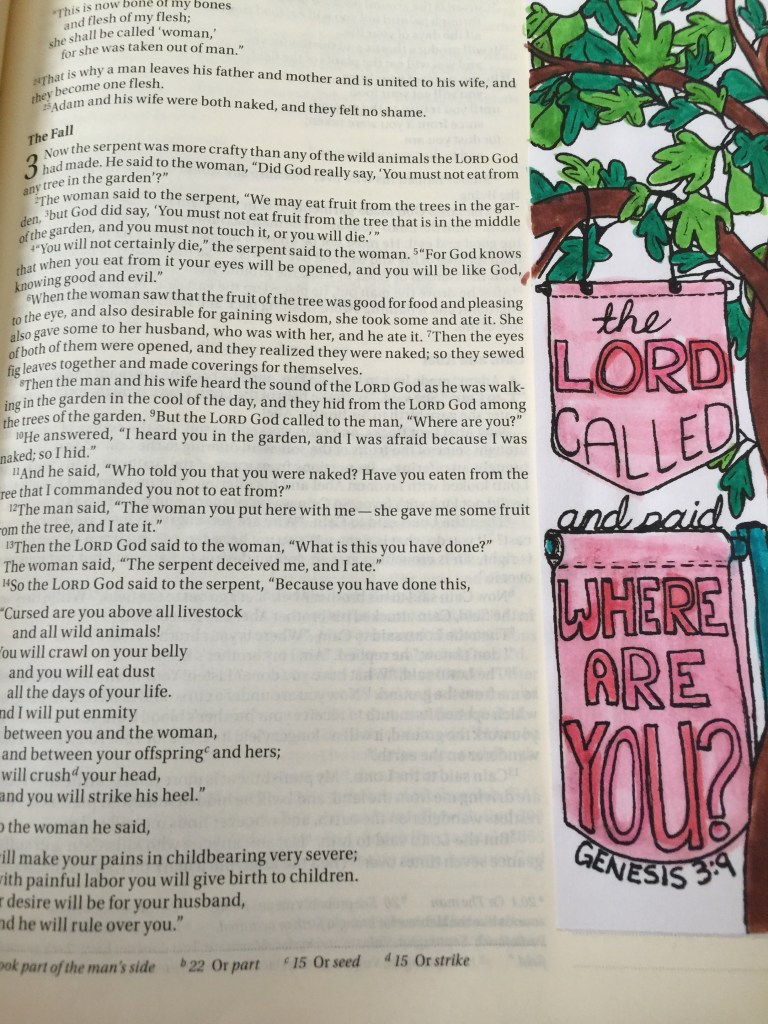 "This is now bone of my bones
and flesh of my flesh;
she shall be called 'woman,'
for she was taken out of man."
24That is why a man leaves his father and mother and is united to his wife, and
they become one flesh.
25Adam and his wife were both naked, and they felt no shame.
The Fall
3 Now the serpent was more crafty than any of the wild animals the LORD God
had made. He said to the woman, "Did God really say, 'You must not eat from
any tree in the garden'?"
2The woman said to the serpent, "We may eat fruit from the trees in the gar-
den, 3but God did say, 'You must not eat fruit from the tree that is in the middle
of the garden, and you must not touch it, or you will die.'"
4"You will not certainly die," the serpent said to the woman. 5"For God knows
that when you eat from it your eyes will be opened, and you will be like God,
knowing good and evil."
6When the woman saw that the fruit of the tree was good for food and pleasing
to the eye, and also desirable for gaining wisdom, she took some and ate it. She
also gave some to her husband, who was with her, and he ate it. 7Then the eyes
of both of them were opened, and they realized they were naked; so they sewed
fig leaves together and made coverings for themselves.
8Then the man and his wife heard the sound of the LORD God as he was walk-
ing in the garden in the cool of the day, and they hid from the LORD God among
the trees of the garden. 9But the LORD God called to the man, "Where are you?"
10He answered, "I heard you in the garden, and I was afraid because I was
naked; so I hid."
11And he said, "Who told you that you were naked? Have you eaten from the
ree that I commanded you not to eat from?"
12The man said, "The woman you put here with me—she gave me some fruit
om the tree, and I ate it."
13Then the LORD God said to the woman, "What is this you have done?"
The woman said, "The serpent deceived me, and I ate."
14So the LORD God said to the serpent, "Because you have done this,
"Cursed are you above all livestock
and all wild animals!
You will crawl on your belly
and you will eat dust
all the days of your life.
nd I will put enmity
between you and the woman,
and between your offspringc and hers;
will crushd your head,
and you will strike his heel."
o the woman he said,
ill make your pains in childbearing very severe;
ith painful labor you will give birth to children.
r desire will be for your husband,
nd he will rule over you."
ook part of the man's side b 22 Or part c 15 Or seed d 15 Or strike
the
LORD
CALLED
and said
WHERE
ARE
YOU?
GENESIS 3:9